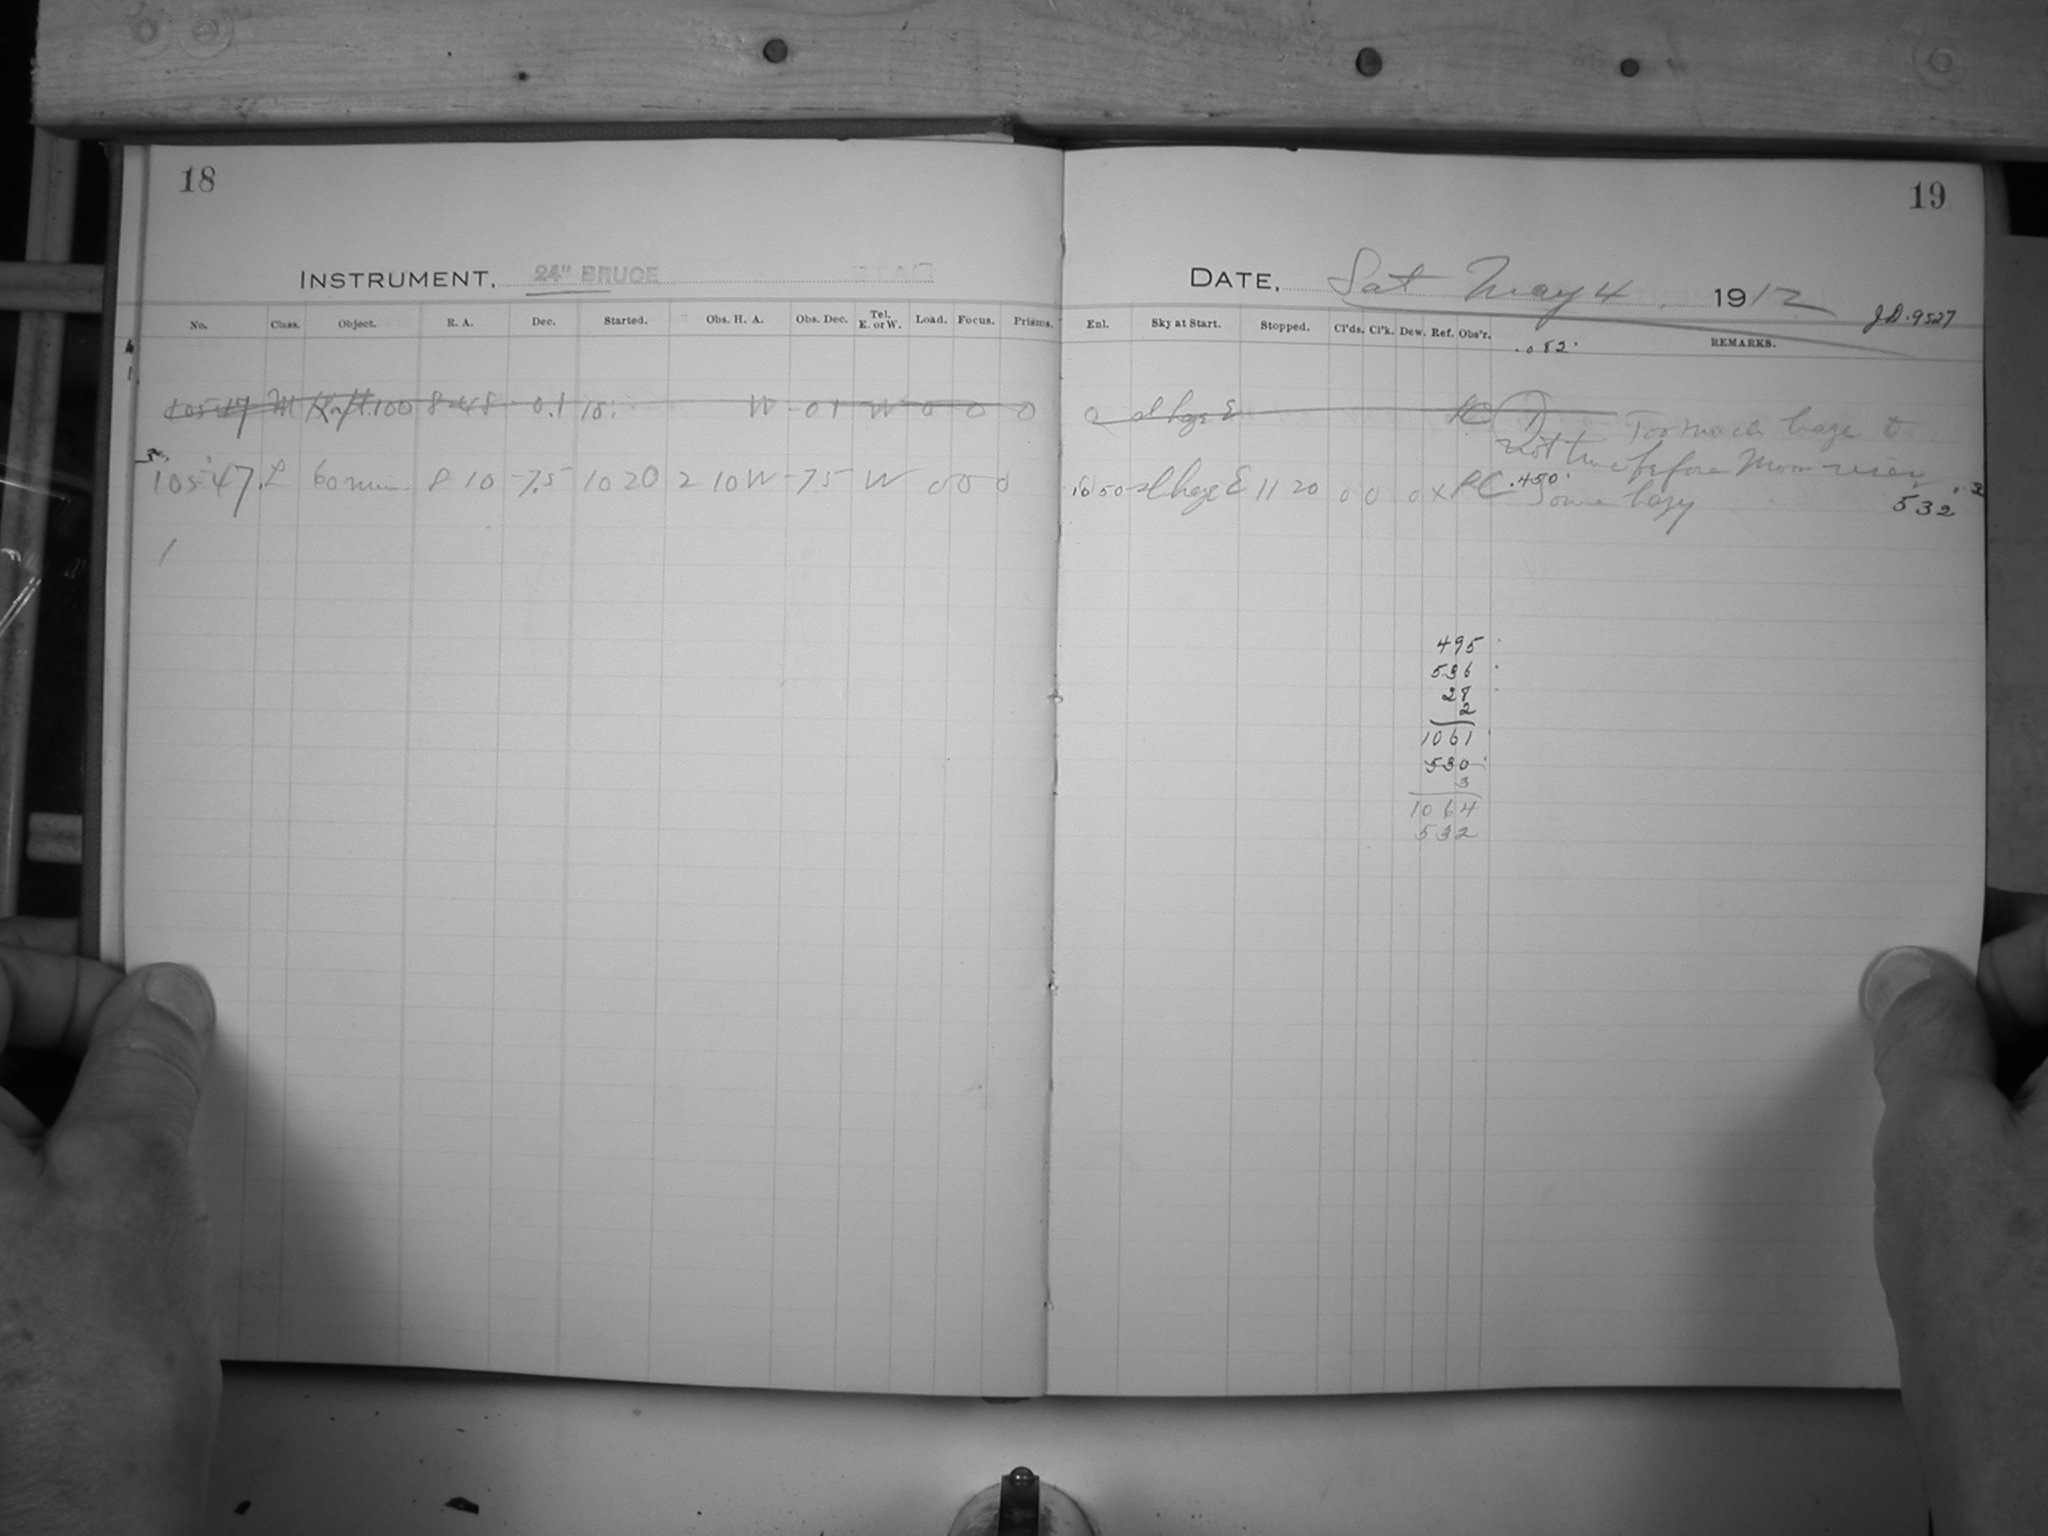 18
19
INSTRUMENT, 24" BRUCE
DATE, Sat May 4, 1912
J.D. 9527
No. Class. Object. R. A. Dec. Started. Obs. H. A. Obs. Dec. Tel. E. or W. Load. Focus. Prisms.
Enl. Sky at Start. Stopped. Cl'ds. Cl'k. Dew. Ref. Obs'r. REMARKS.
.082
10547 M 100 8-48 -0.1 10: W -01 W 0 0 0
0 sl haze E Too much haze to
before Moon rises
10547 L 60 min. 8 10 -7.5 10 20 2 10 W -7.5 W 0 0 0
10 50 sl haze E 11 20 0 0 0 X .450 Some hazy
532
495
536
28
2
1061
530
3
1064
532